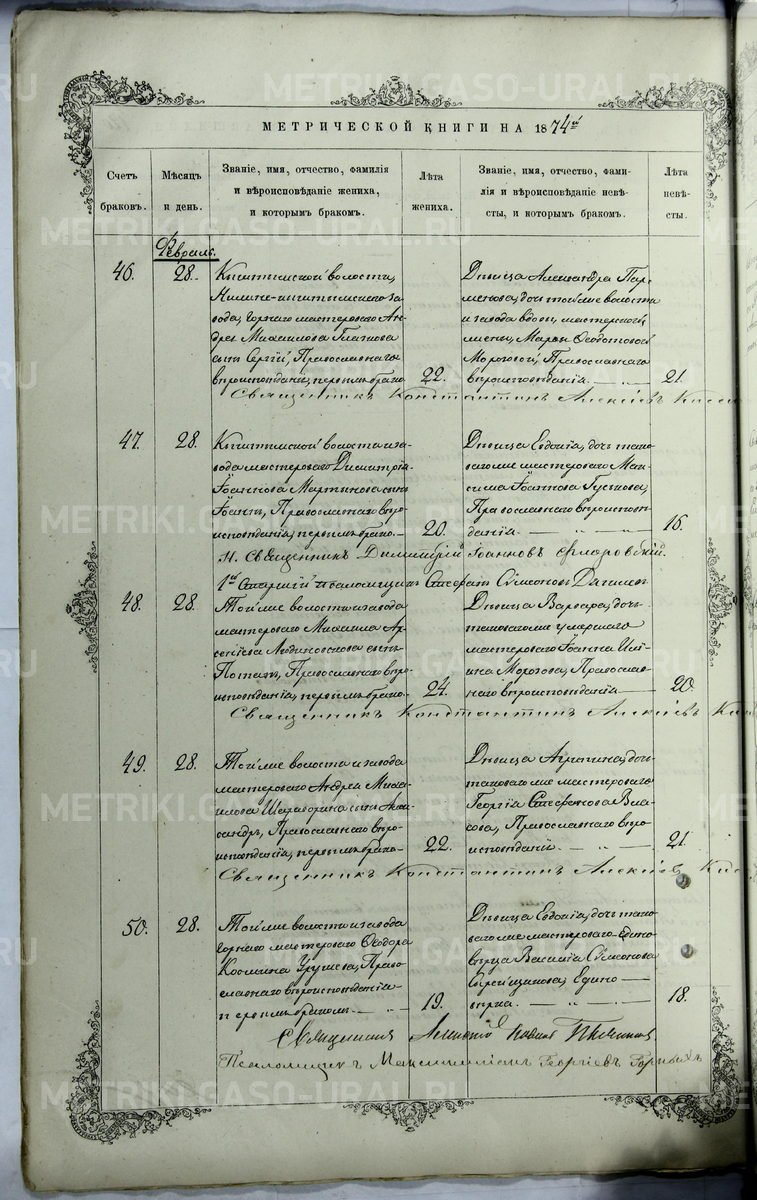 METRIKI.GASO-URAL.RU
МЕТРИЧЕСКОЙ КНИГИ НА 1874й
Счетъ браковъ.
Мѣсяцъ и день.
Званіе, имя, отчество, фамилія
и вѣроисповѣданіе жениха,
и которымъ бракомъ.
Лѣта
жениха.
Званіе, имя, отчество, фами-
лія и вѣроисповѣданіе невѣ-
сты, и которымъ бракомъ.
Лѣта
невѣ-
сты.
Февраль.
46.
28.
Кыштымской волости,
Нижне-кыштымскаго за-
вода, горнаго мастероваго Ан-
дрея Михаилова
сынъ Сергій, Православнаго
вѣроисповѣданія, первымъ бракомъ
22.
Дѣвица Александра Пар-
менова, дочь той же волости
и завода вдовы, мастерской
жены, Марьи Ѳеодотовой
Морозовой, Православнаго
вѣроисповѣданія
21.
Священникъ Константинъ Алексіевъ
47.
28.
Кыштымской волости и за-
вода мастероваго Димитрія
Іоаннова Мартынова сынъ
Іоаннъ, Православнаго вѣро-
исповѣданія, первымъ бракомъ
20.
Дѣвица Евдокія, дочь тако-
ваго же мастероваго Мак-
сима Іоаннова
Православнаго вѣроисповѣ-
данія
16.
Н. Священникъ Димитрій Іоанновъ Флоровскій.
1й Старшій псаломщикъ Стефанъ Сѵмеоновъ
48.
28.
Той же волости и завода
мастероваго Михаила Ар-
сеніева сынъ
Потапъ, Православнаго вѣро-
исповѣданія, первымъ бракомъ
24.
Дѣвица Варвара, дочь
таковаго же умершаго
мастероваго Іоанна Иль-
ина Морозова, Православ-
наго вѣроисповѣданія
20.
Священникъ Константинъ Алексіевъ
49.
28.
Той же волости и завода
мастероваго Андрея Миха-
илова сынъ Алек-
сандръ, Православнаго вѣро-
исповѣданія, первымъ бракомъ
22.
Дѣвица Агрипина, дочь
таковаго же мастероваго
Георгія Стефанова Вла-
сова, Православнаго вѣро-
исповѣданія
21.
Священникъ Константинъ Алексіевъ
50.
28.
Той же волости и завода
горнаго мастероваго Ѳеодора
Космина Право-
славнаго вѣроисповѣданія
первымъ бракомъ
19.
Дѣвица Евдокія, дочь тако-
ваго же мастероваго Едино-
вѣрца Василія Сѵмеонова
Едино-
вѣрка.
18.
Священникъ
Псаломщикъ Максимиліанъ Георгіевъ Горныхъ